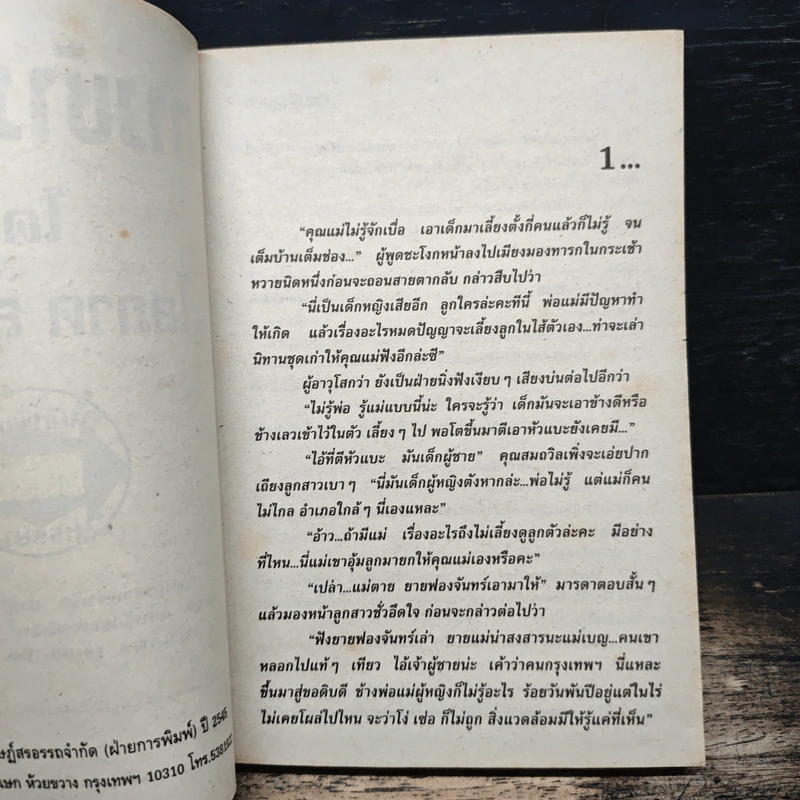 1...
“คุณแม่ไม่รู้จักเบื่อ เอาเด็กมาเลี้ยงตั้งกี่คนแล้วก็ไม่รู้ จน
เต็มบ้านเต็มช่อง...” ผู้พูดชะโงกหน้าลงไปเมียงมองทารกในกระเช้า
หวายนิดหนึ่งก่อนจะถอนสายตากลับ กล่าวสืบไปว่า
“นี่เป็นเด็กหญิงเสียอีก ลูกใครล่ะคะทีนี้ พ่อแม่มีปัญหาทำ
ให้เกิด แล้วเรื่องอะไรหมดปัญญาจะเลี้ยงลูกในไส้ตัวเอง...ท่าจะเล่า
นิทานชุดเก่าให้คุณแม่ฟังอีกล่ะซี”
ผู้อาวุโสกว่า ยังเป็นฝ่ายนิ่งฟังเงียบๆ เสียงบ่นต่อไปอีกว่า
“ไม่รู้พ่อ รู้แม่แบบนี้น่ะ ใครจะรู้ว่า เด็กมันจะเอาข้างดีหรือ
ข้างเลวเข้าไว้ในตัว เลี้ยงๆ ไป พอโตขึ้นมาตีเอาหัวแบะยังเคยมี...”
“ไอ้ที่ตีหัวแบะ มันเด็กผู้ชาย” คุณสมถวิลเพิ่งจะเอ่ยปาก
เถียงลูกสาวเบาๆ “นี่มันเด็กผู้หญิงตังหากล่ะ...พ่อไม่รู้ แต่แม่ก็คน
ไม่ไกล อำเภอใกล้ๆ นี่เองแหละ”
“อ้าว...ถ้ามีแม่ เรื่องอะไรถึงไม่เลี้ยงดูลูกตัวล่ะคะ มีอย่าง
ที่ไหน...นี่แม่เขาอุ้มลูกมายกให้คุณแม่เองหรือคะ”
“เปล่า...แม่ตาย ยายฟองจันทร์เอามาให้” มารดาตอบสั้นๆ
แล้วมองหน้าลูกสาวชั่วอึดใจ ก่อนจะกล่าวต่อไปว่า
“ฟังยายฟองจันทร์เล่า ยายแม่น่าสงสารนะแม่เบญ...คนเขา
หลอกไปแท้ๆ เทียว ไอ้เจ้าผู้ชายน่ะ เค้าว่าคนกรุงเทพฯ นี่แหละ
ขึ้นมาสู่ขอดิบดี ข้างพ่อแม่ผู้หญิงก็ไม่รู้อะไร ร้อยวันพันปีอยู่แต่ในไร่
ไม่เคยโผล่ไปไหน จะว่าโง่ เซ่อ ก็ไม่ถูก สิ่งแวดล้อมมีให้รู้แค่ที่เห็น”
ษฎ์สรอรรถจำกัด (ฝ่ายการพิมพ์) ปี 2545
เษก ห้วยขวาง กรุงเทพฯ 10310 โทร.